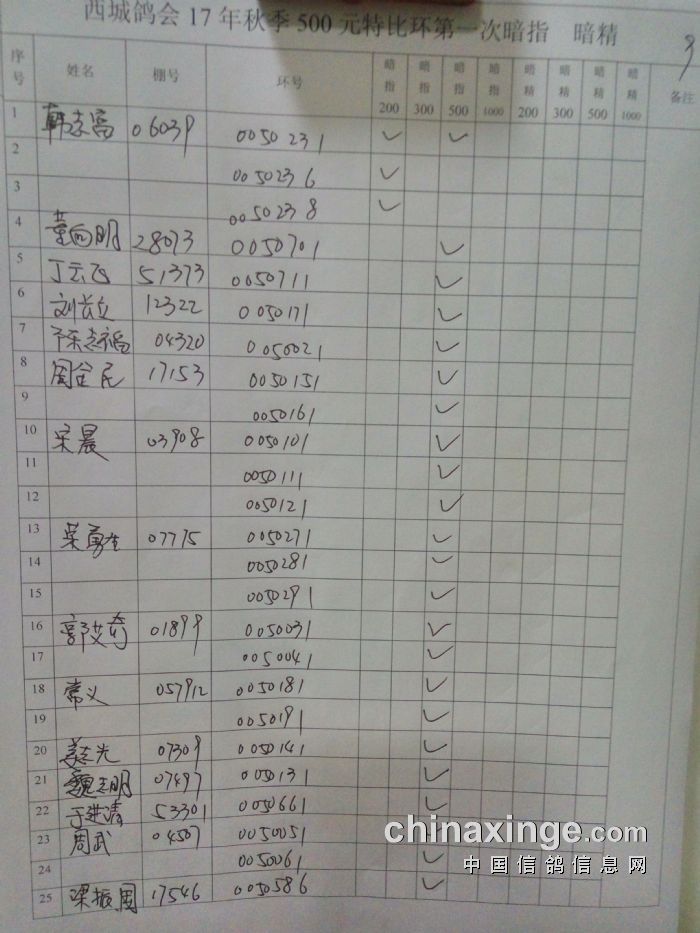 西城鸽会 17 年秋季 500 元特比环第一次暗指 暗精
序号 姓名 棚号 环号 暗指200 暗指300 暗指500 暗指1000 暗精200 暗精300 暗精500 暗精1000 备注
1 韩志富 06039 0050231 ✓ ✓
2 0050236 ✓
3 0050238 ✓
4 董向明 28073 0050701 ✓
5 丁云飞 51373 0050711 ✓
6 刘长立 12322 0050171 ✓
7 陈志福 04320 0050021 ✓
8 周金民 17153 0050151 ✓
9 0050161 ✓
10 宋晨 03908 0050101 ✓
11 0050111 ✓
12 0050121 ✓
13 荣勇生 07775 0050271 ✓
14 0050281 ✓
15 0050291 ✓
16 郭艾莉 01899 0050031 ✓
17 0050041 ✓
18 常义 057912 0050181 ✓
19 0050191 ✓
20 姜志光 07309 0050141 ✓
21 魏志明 07497 0050131 ✓
22 于进清 53301 0050661 ✓
23 周武 04507 0050051
24 0050061 ✓
25 梁振周 17546 0050586 ✓
chinaxinge.com
中国信鸽信息网